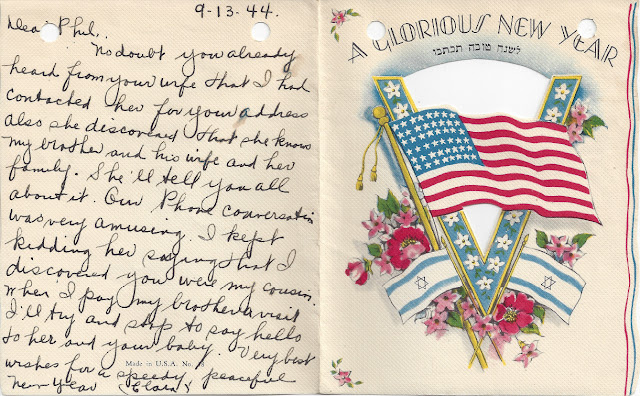 9-13-44.
Dear Phil,
No doubt you already
heard from your wife that I had
contacted her for your address
also she discovered that she knows
my brother and his wife and her
family. She'll tell you all
about it. Our Phone conversation
was very amusing. I kept
kidding her saying that I
discovered you were my cousin.
When I pay my brother a visit
I'll try and stop to say hello
to her and your baby. Very best
wishes for a speedy, peaceful
New Year
Made in U.S.A. No.
A GLORIOUS NEW YEAR
לשנה טובה תכתבו